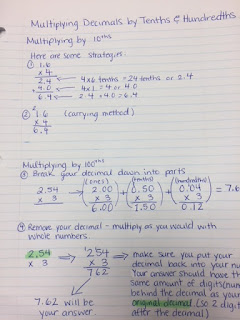 Multiplying Decimals by Tenths & Hundredths
Multiplying by 10ths
Here are some strategies:
① 1.6
x 4
2.4 ← 4x6 tenths = 24 tenths or 2.4
+ 4.0 ← 4x1 = 4 or 4.0
6.4 2.4 + 4.0 = 6.4
② 1.6 (carrying method)
x 4
6.4
Multiplying by 100ths
Break your decimal down into parts
(ones) (tenths) (hundredths)
2.54 → (2.00) + (0.50) + (0.04) = 7.6
x 3 x 3 x 3 x 3
6.00 1.50 0.12
Remove your decimal - multiply as you would with
whole numbers.
2.54 → 254 → make sure you put your
x 3 x 3 decimal back into your nu
762 Your answer should have th
same amount of digits (num
behind the decimal as your
7.62 will be original decimal (so 2 digit
your answer. after the decimal)